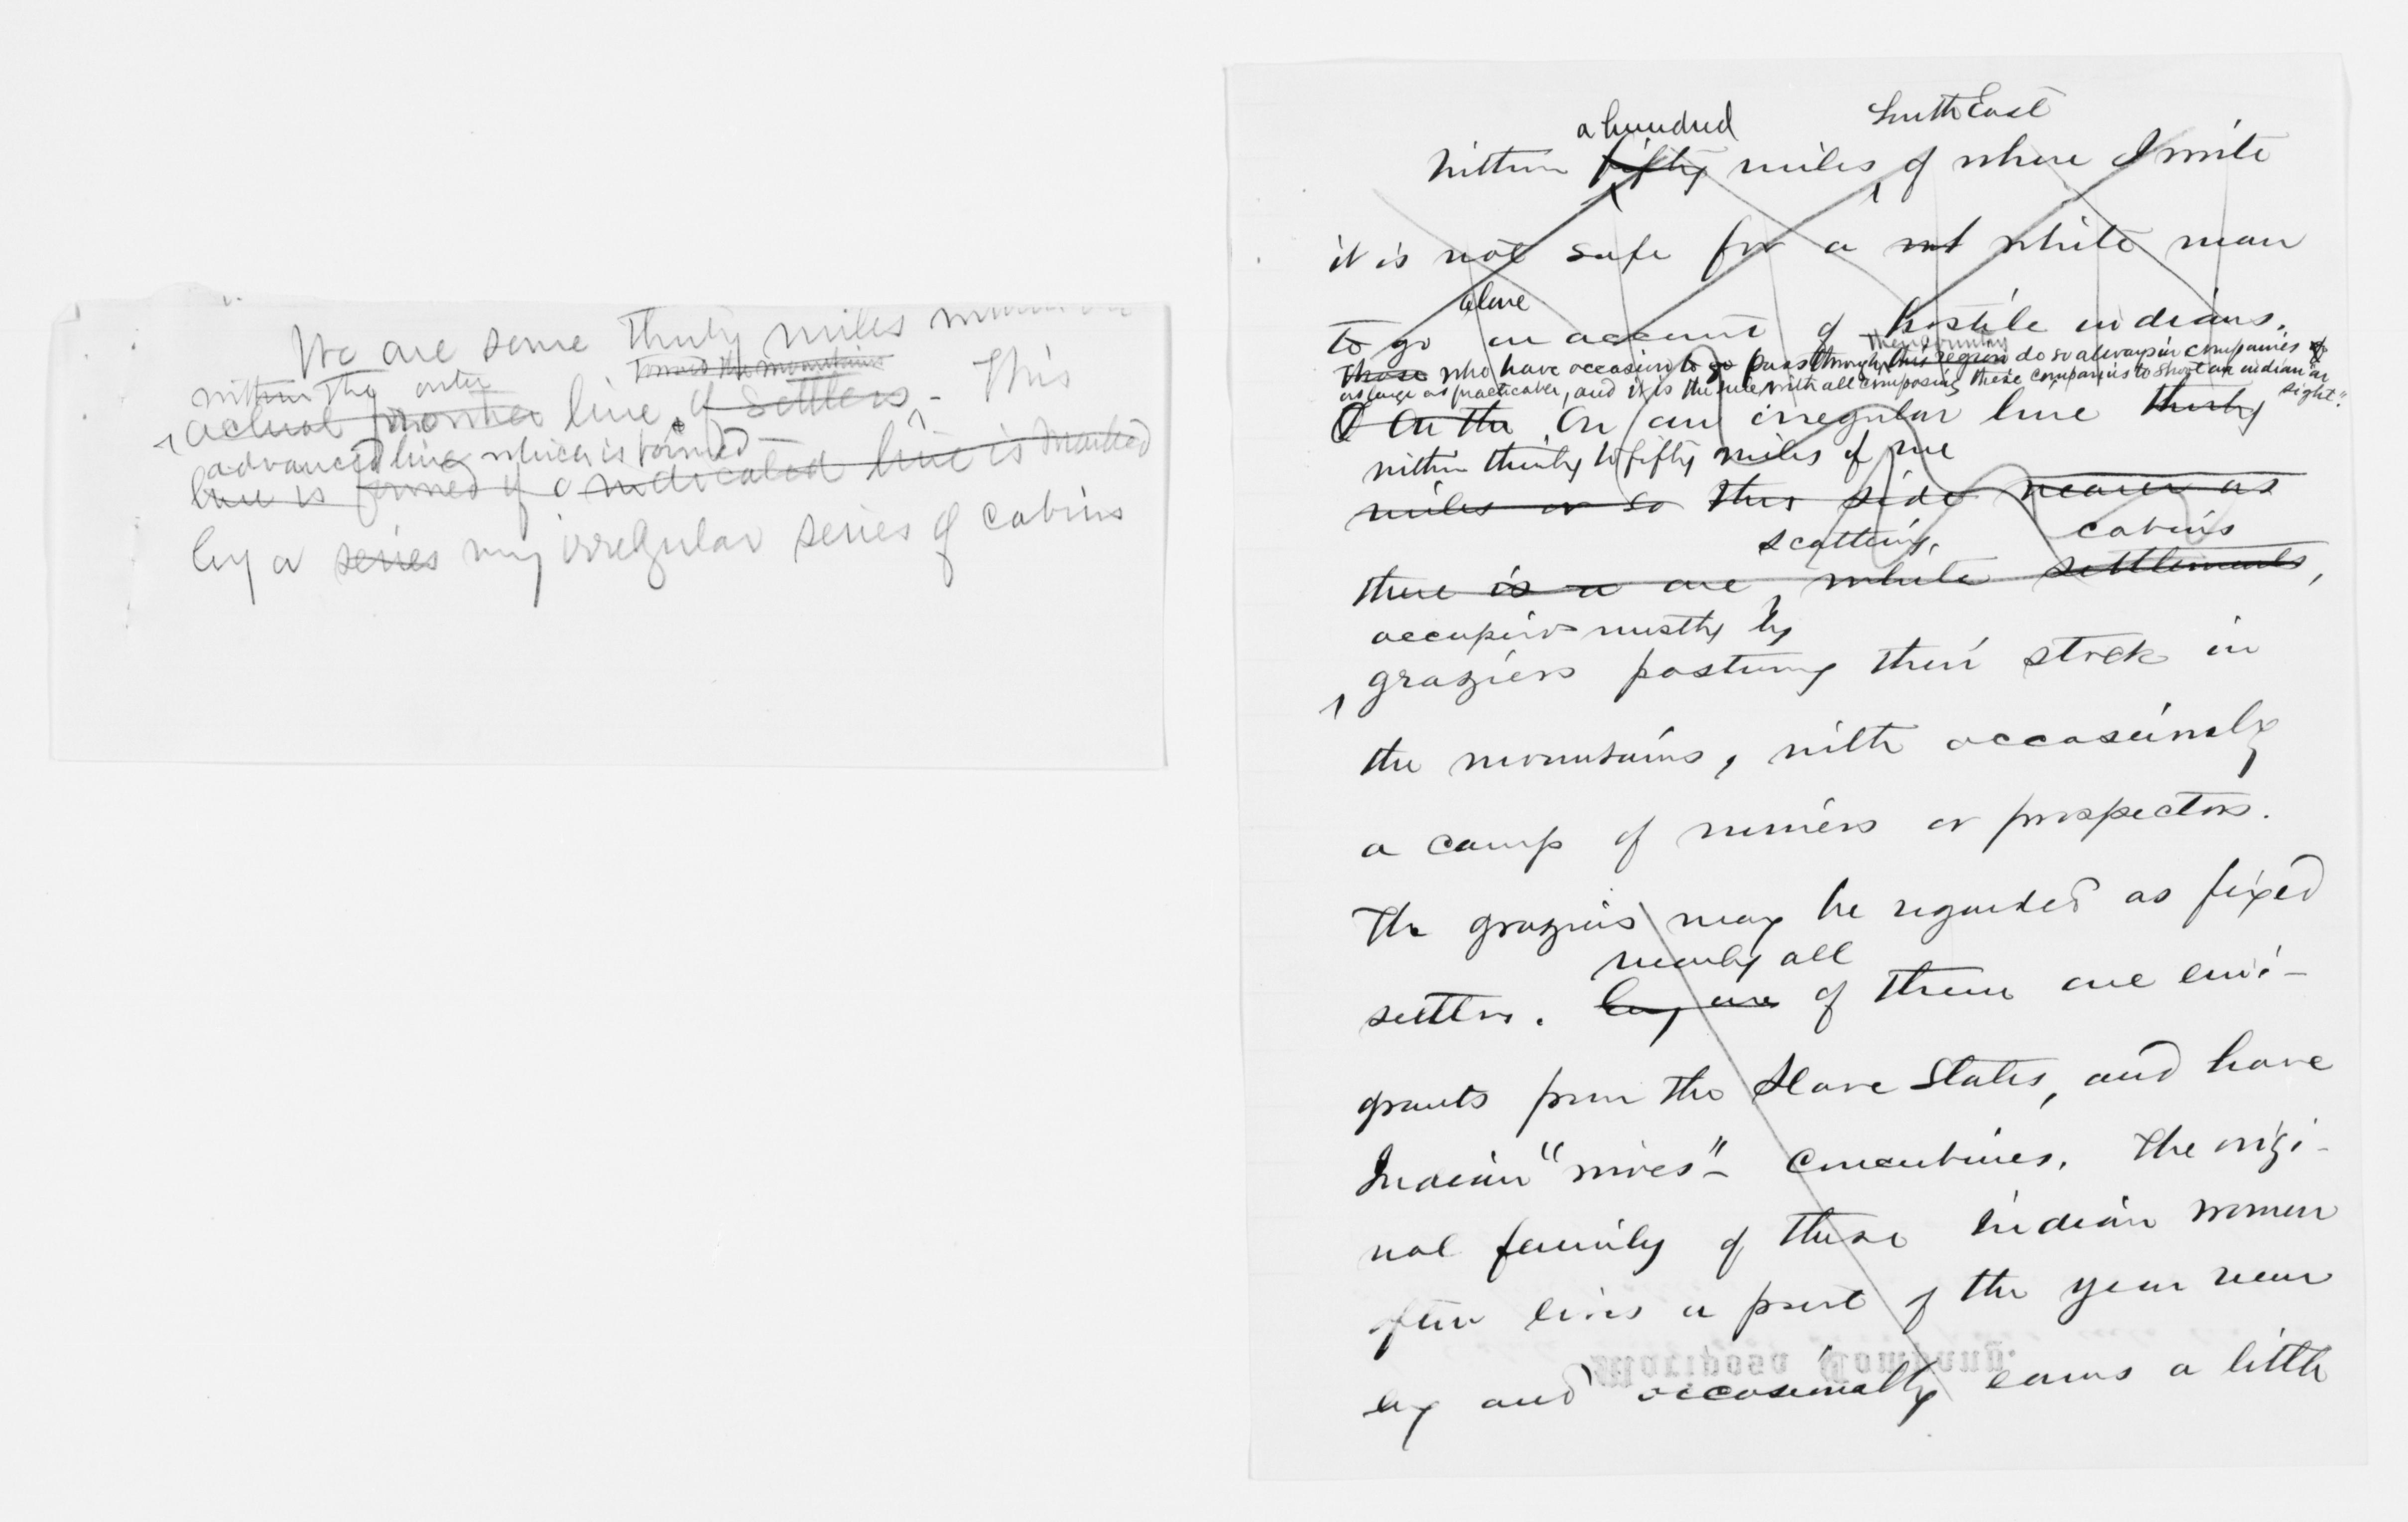 We are some thirty miles
toward the mountains
within the outer
actual frontier line of settlers - This
advanced line which is formed
line is formed of a indicated line is marked
by a series very irregular series of cabins
a hundred South East
Within fifty miles of where I write
it is not safe for a not white man
alone
to go on account of hostile indians.
the country
Those who have occasion to go pass through this region do so always in companies of
as large as practicable, and it is the rule with all composing these companies to shoot an indian "at
sight."
O On the On an irregular line thirty
within thirty to fifty miles of me
miles or so this side nearer as
scattering cabins
there is a are white settlements,
occupied mostly by
graziers pasturing their stock in
the mountains, with occasionally
a camp of miners or prospectors.
The graziers may be regarded as fixed
nearly all
settlers. by are of them are emi-
grants from the Slave States, and have
Indian "wives" - concubines. The origi-
nal family of these indian women
often lives a part of the year near
by and occasionally earns a little
Mariposa Company.